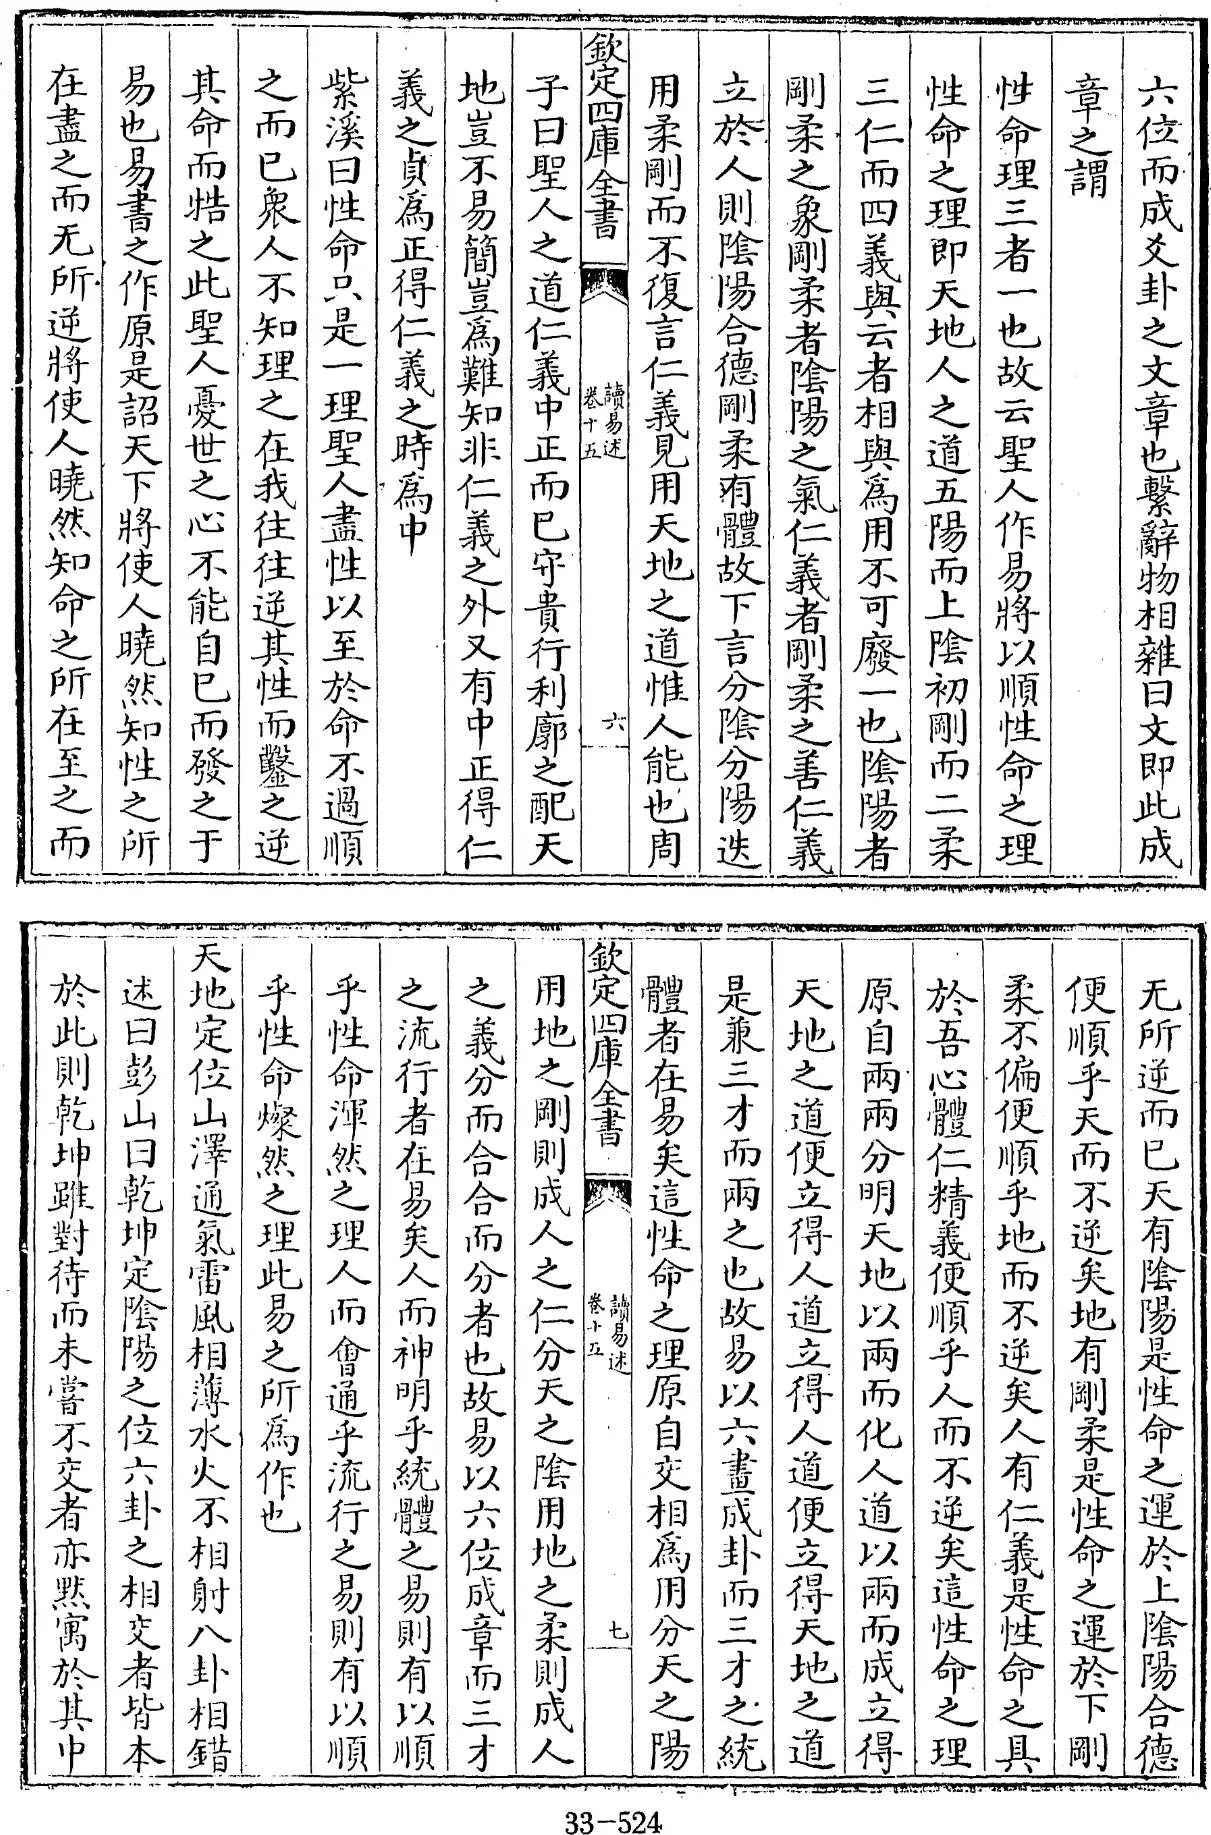 六位而成爻卦之文章也繫辭物相雜曰文即此成
章之謂
性命理三者一也故云聖人作易將以順性命之理
性命之理即天地人之道五陽而上陰初剛而二柔
三仁而四義與云者相與為用不可廢一也陰陽者
剛柔之象剛柔者陰陽之氣仁義者剛柔之善仁義
立於人則陰陽合德剛柔有體故下言分陰分陽迭
用柔剛而不復言仁義見用天地之道惟人能也周
欽定四庫全書
讀易述
卷十五
六
子曰聖人之道仁義中正而已守貴行利廓之配天
地豈不易簡豈為難知非仁義之外又有中正得仁
義之貞為正得仁義之時為中
紫溪曰性命只是一理聖人盡性以至於命不過順
之而已衆人不知理之在我往往逆其性而鑿之逆
其命而牿之此聖人憂世之心不能自已而發之于
易也易書之作原是詔天下將使人曉然知性之所
在盡之而无所逆將使人曉然知命之所在至之而
无所逆而已天有陰陽是性命之運於上陰陽合德
便順乎天而不逆矣地有剛柔是性命之運於下剛
柔不偏便順乎地而不逆矣人有仁義是性命之具
於吾心體仁精義便順乎人而不逆矣這性命之理
原自兩兩分明天地以兩而化人道以兩而成立得
天地之道便立得人道立得人道便立得天地之道
是兼三才而兩之也故易以六畫成卦而三才之統
體者在易矣這性命之理原自交相為用分天之陽
欽定四庫全書
讀易述
卷十五
七
用地之剛則成人之仁分天之陰用地之柔則成人
之義分而合合而分者也故易以六位成章而三才
之流行者在易矣人而神明乎統體之易則有以順
乎性命渾然之理人而會通乎流行之易則有以順
乎性命燦然之理此易之所為作也
天地定位山澤通氣雷風相薄水火不相射八卦相錯
述曰彭山曰乾坤定陰陽之位六卦之相交者皆本
於此則乾坤雖對待而未嘗不交者亦黙寓於其中
33-524